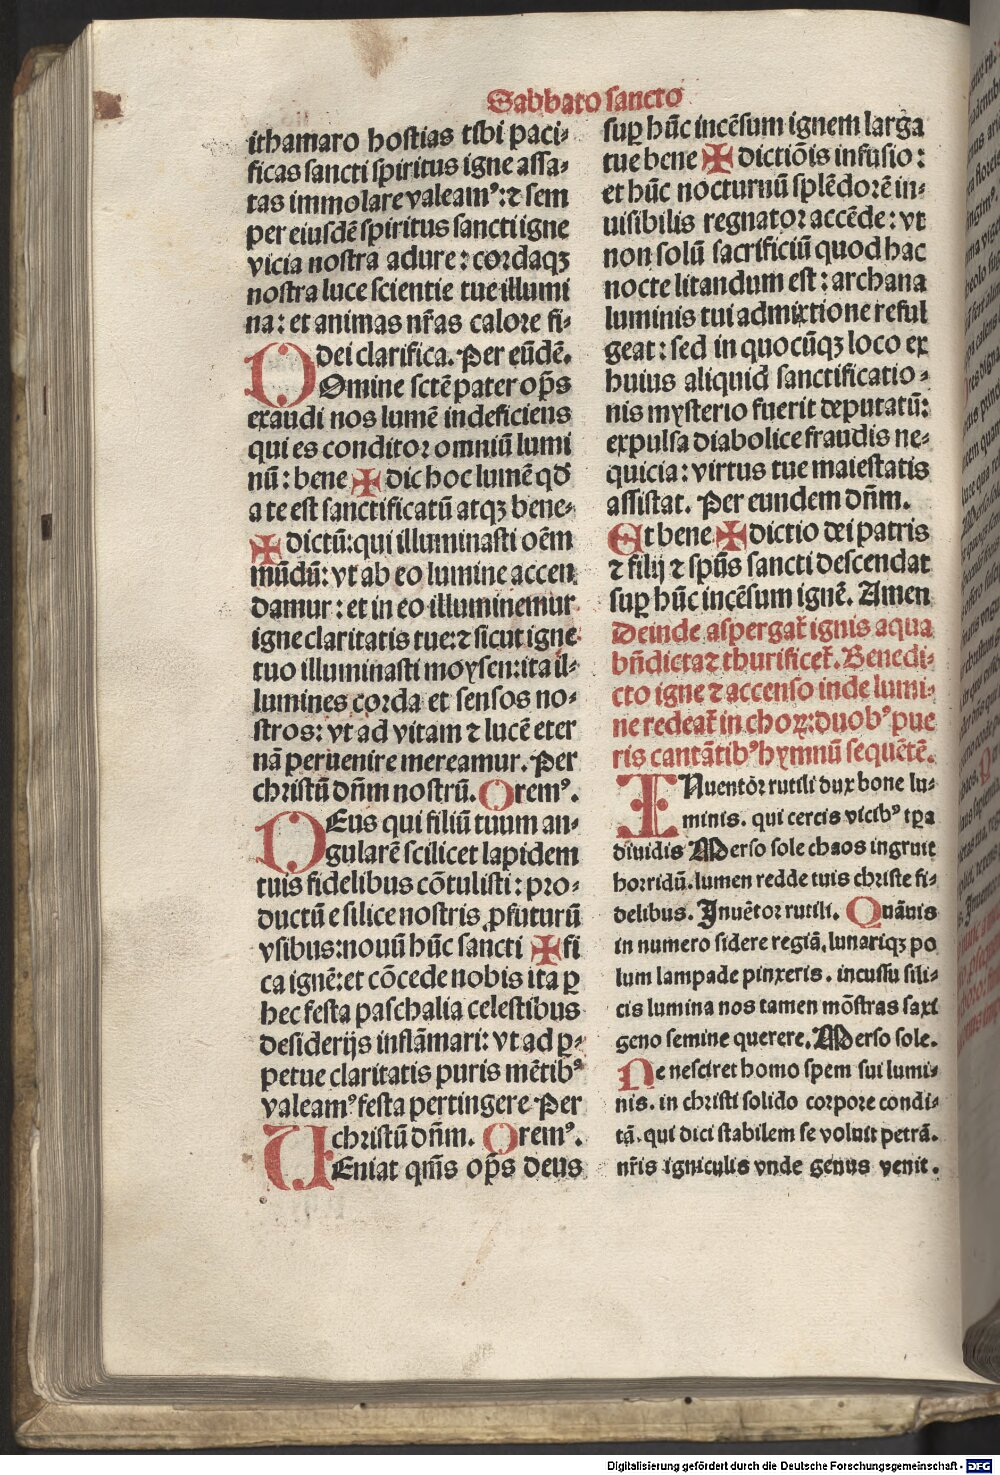 Sabbato sancto
ithamaro hostias tibi paci-
ficas sancti spiritus igne assa-
tas immolare valeamꝰ: ⁊ sem
per eiusdē spiritus sancti igne
vicia nostra adure: cordaqꝫ
nostra luce scientie tue illumi
na: et animas nr̄as calore fi-
dei clarifica. Per eūdē.
DOmine sctē pater op̄s
exaudi nos lumē indeficiens
qui es conditor omniū lumi
nū: bene ✠ dic hoc lumē qd̄
a te est sanctificatū atqꝫ bene-
✠ dictū: qui illuminasti oēm
mūdū: vt ab eo lumine accen
damur: et in eo illuminemur
igne claritatis tue: ⁊ sicut igne
tuo illuminasti moysen: ita il-
lumines corda et sensos no-
stros: vt ad vitam ⁊ lucē eter
nā peruenire mereamur. Per
christū dn̄m nostrū. Oremꝰ.
DEus qui filiū tuum an-
gularē scilicet lapidem
tuis fidelibus cōtulisti: pro-
ductū e silice nostris ꝓfuturū
vsibus: nouū hūc sancti ✠ fi
ca ignē: et cōcede nobis ita ꝑ
hec festa paschalia celestibus
desiderijs inflāmari: vt ad ꝑ-
petue claritatis puris mētibꝰ
valeamꝰ festa pertingere Per
christū dn̄m. Oremꝰ.
UEniat qm̄s op̄s deus
suꝑ hūc incēsum ignem larga
tue bene ✠ dictiōis infusio:
et hūc nocturnū splēdorē in-
uisibilis regnator accēde: vt
non solū sacrificiū quod hac
nocte litandum est: archana
luminis tui admixtione reful
geat: sed in quocūqꝫ loco ex
huius aliquid sanctificatio-
nis mysterio fuerit deputatū:
expulsa diabolice fraudis ne-
quicia: virtus tue maiestatis
assistat. Per eundem dn̄m.
Et bene ✠ dictio dei patris
⁊ filij ⁊ spūs sancti descendat
suꝑ hūc incēsum ignē. Amen
Deinde aspergat̄ ignis aqua
bn̄dicta ⁊ thurificet̄. Benedi-
cto igne ⁊ accenso inde lumi-
ne redeat̄ in choꝝ: duobꝰ pue
ris cantātibꝰ hymnū sequētē.
INuentor rutili dux bone lu-
minis. qui certis vicibꝰ tꝑa
diuidis Merso sole chaos ingruit
horridū. lumen redde tuis christe fi-
delibus. Inuētor rutili. Quāuis
in numero sidere regiā. lunariqꝫ po
lum lampade pinxeris. incussu sili-
cis lumina nos tamen mōstras saxi
geno semine querere. Merso sole.
Ne nesciret homo spem sui lumi-
nis. in christi solido corpore condi-
tā. qui dici stabilem se voluit petrā.
nr̄is igniculis vnde genus venit.
Digitalisierung gefördert durch die Deutsche Forschungsgemeinschaft - DFG